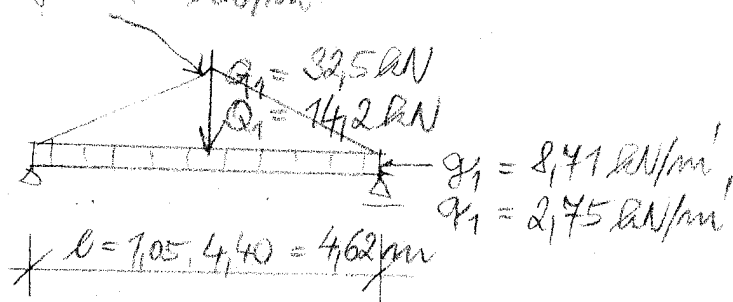 G₁ = 32,5 kN
Q₁ = 14,2 kN
g₁ = 8,71 kN/m',
q₁ = 2,75 kN/m'
l = 1,05 . 4,40 = 4,62 m